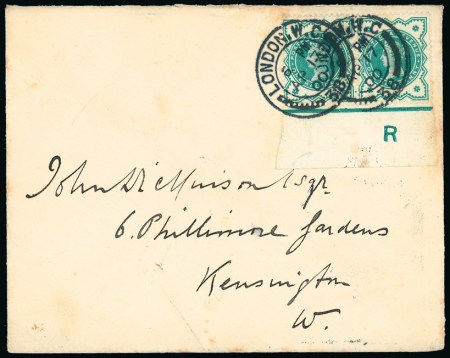 LONDON. W.C
38
W.C
38
R
John McMuison Esqr.
6. Phillimore Gardens
Kensington
W.